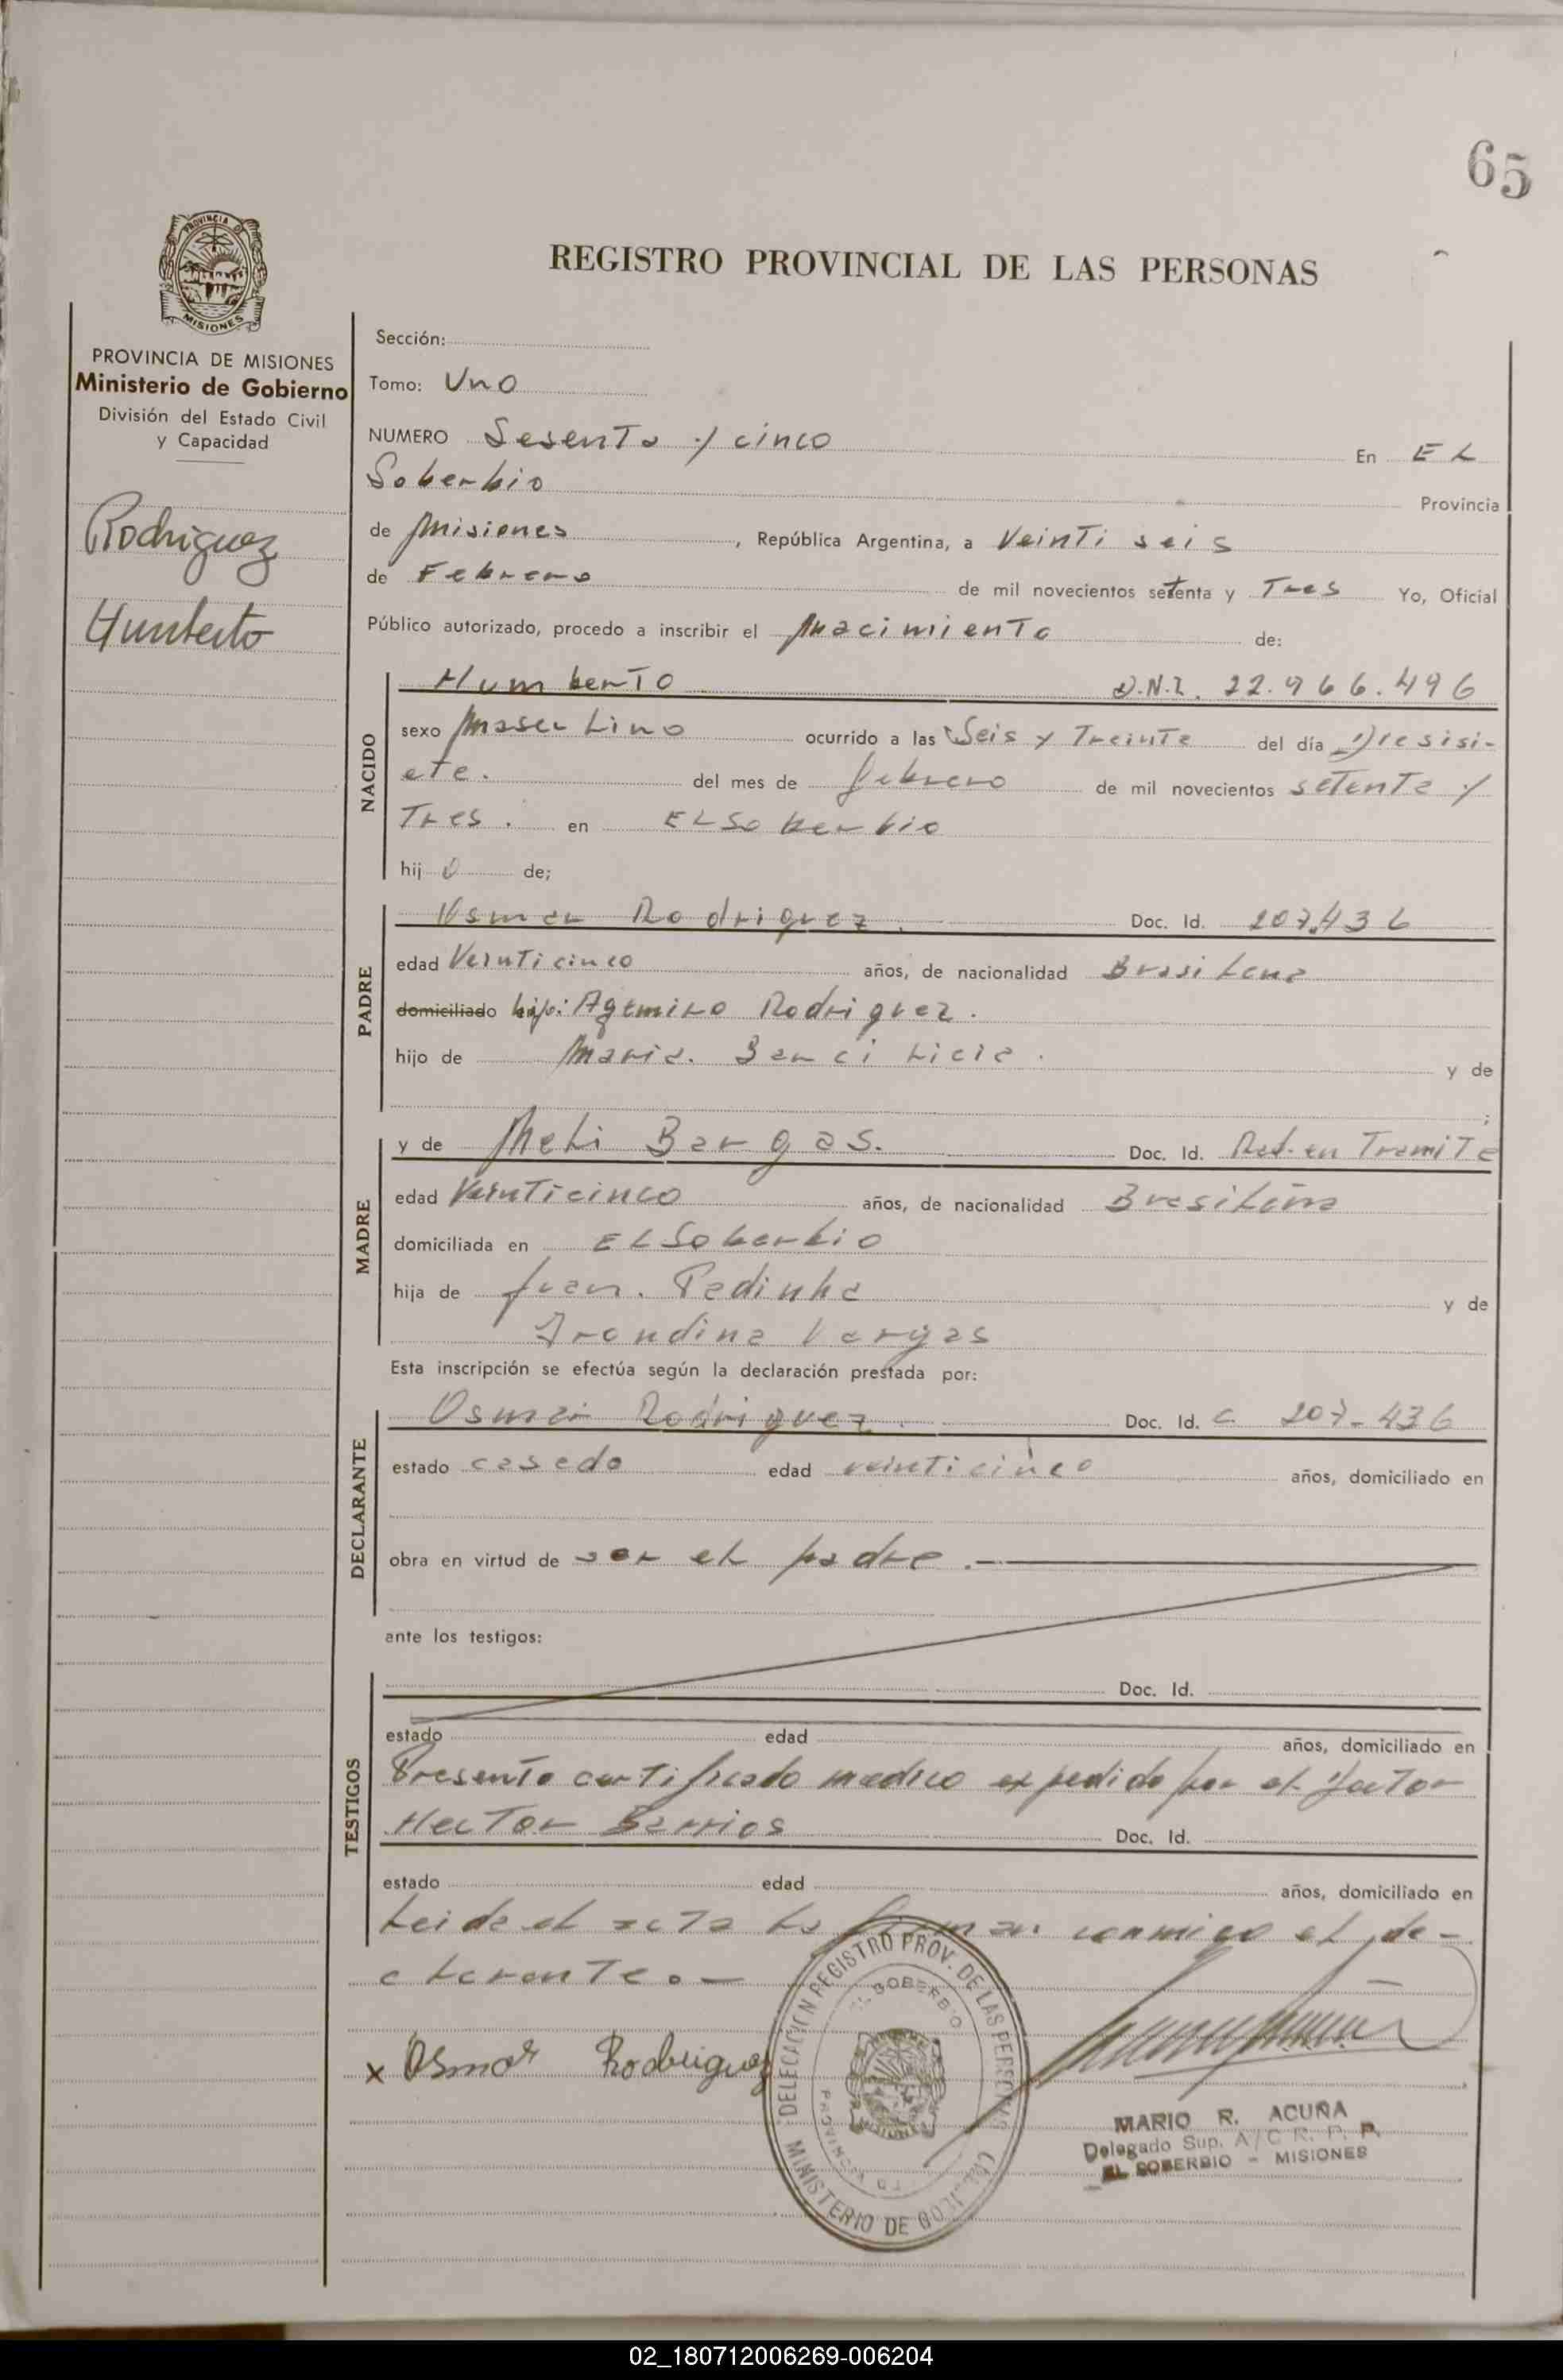 65
PROVINCIA DE MISIONES
REGISTRO PROVINCIAL DE LAS PERSONAS
PROVINCIA DE MISIONES
Ministerio de Gobierno
División del Estado Civil
y Capacidad
Rodriguez
Humberto
Sección:
Tomo: Uno
NUMERO Sesenta y cinco En EL
Soberbio Provincia
de Misiones, República Argentina, a Veinti seis
de Febrero de mil novecientos setenta y Tres Yo, Oficial
Público autorizado, procedo a inscribir el Nacimiento de:
NACIDO
Humberto D.N.I. 22.966.496
sexo Masculino ocurrido a las Seis y Treinta del día Diesisi-
ete. del mes de febrero de mil novecientos setenta y
Tres. en EL Soberbio
hijo de;
PADRE
Osmar Rodriguez. Doc. Id. 207.436
edad Veinticinco años, de nacionalidad Brasilena
domiciliado hijo: Agemiro Rodriguez.
hijo de Maria. y de
MADRE
y de Meli Bargas. Doc. Id. Rad. en Tramite
edad Veinticinco años, de nacionalidad Brasileña
domiciliada en EL Soberbio
hija de Juan. Padinha y de
Irondina Vargas
Esta inscripción se efectúa según la declaración prestada por:
DECLARANTE
Osmar Rodriguez. Doc. Id. C 207-436
estado casado edad veinticinco años, domiciliado en
obra en virtud de ser el padre.
ante los testigos:
TESTIGOS
Doc. Id.
estado edad años, domiciliado en
Presento certificado medico expedido por el Doctor
Hector Barrios Doc. Id.
estado edad años, domiciliado en
Leida el acta la firman conmigo el de-
clarante.-
x Osmar Rodriguez
DELEGACION REGISTRO PROV. DE LAS PERSONAS
EL SOBERBIO
PROVINCIA DE
MINISTERIO DE GOBIERNO
MARIO R. ACUÑA
Delegado Sup. A/C R. P. P.
EL SOBERBIO - MISIONES
02_180712006269-006204